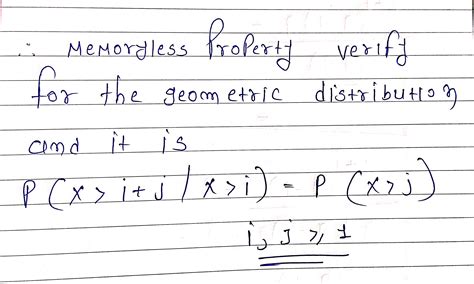 ∴ Memoryless Property verify
for the geometric distribution
and it is
P (X > i+j / X > i) = P (X > j)
i, j ≥ 1